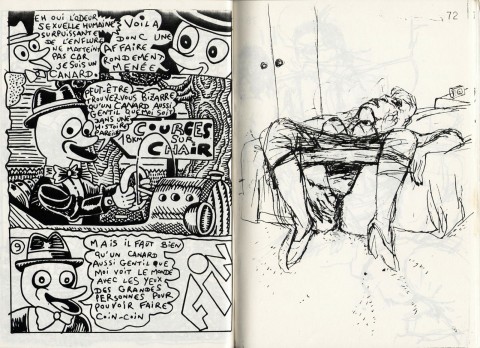 EH OUI L'ODEUR
SEXUELLE HUMAINE
SURPUISSANTE
DE L'ENFLURE
NE M'ATTEINT
PAS CAR
JE SUIS UN
CANARD.
VOILÀ
DONC UNE
AFFAIRE
RONDEMENT
MENÉE
PEUT-ÊTRE
TROUVEZ-VOUS BIZARRE
QU'UN CANARD AUSSI
GENTIL QUE MOI SOIT
DANS UNE
HISTOIRE
PAREILLE
18KM
COURGES
SUR
CHAIR
9
MAIS IL FAUT BIEN
QU'UN CANARD
AUSSI GENTIL QUE
MOI VOIT LE MONDE
AVEC LES YEUX
DES GRANDES
PERSONNES POUR
POUVOIR FAIRE
COIN-COIN
FIN
72